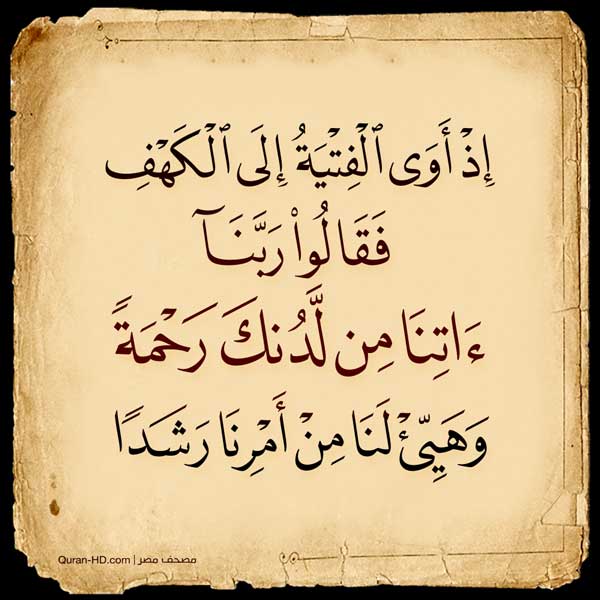 إِذْ أَوَى ٱلْفِتْيَةُ إِلَى ٱلْكَهْفِ
فَقَالُوا۟ رَبَّنَآ
ءَاتِنَا مِن لَّدُنكَ رَحْمَةً
وَهَيِّئْ لَنَا مِنْ أَمْرِنَا رَشَدًا
Quran-HD.com | مصحف مصر